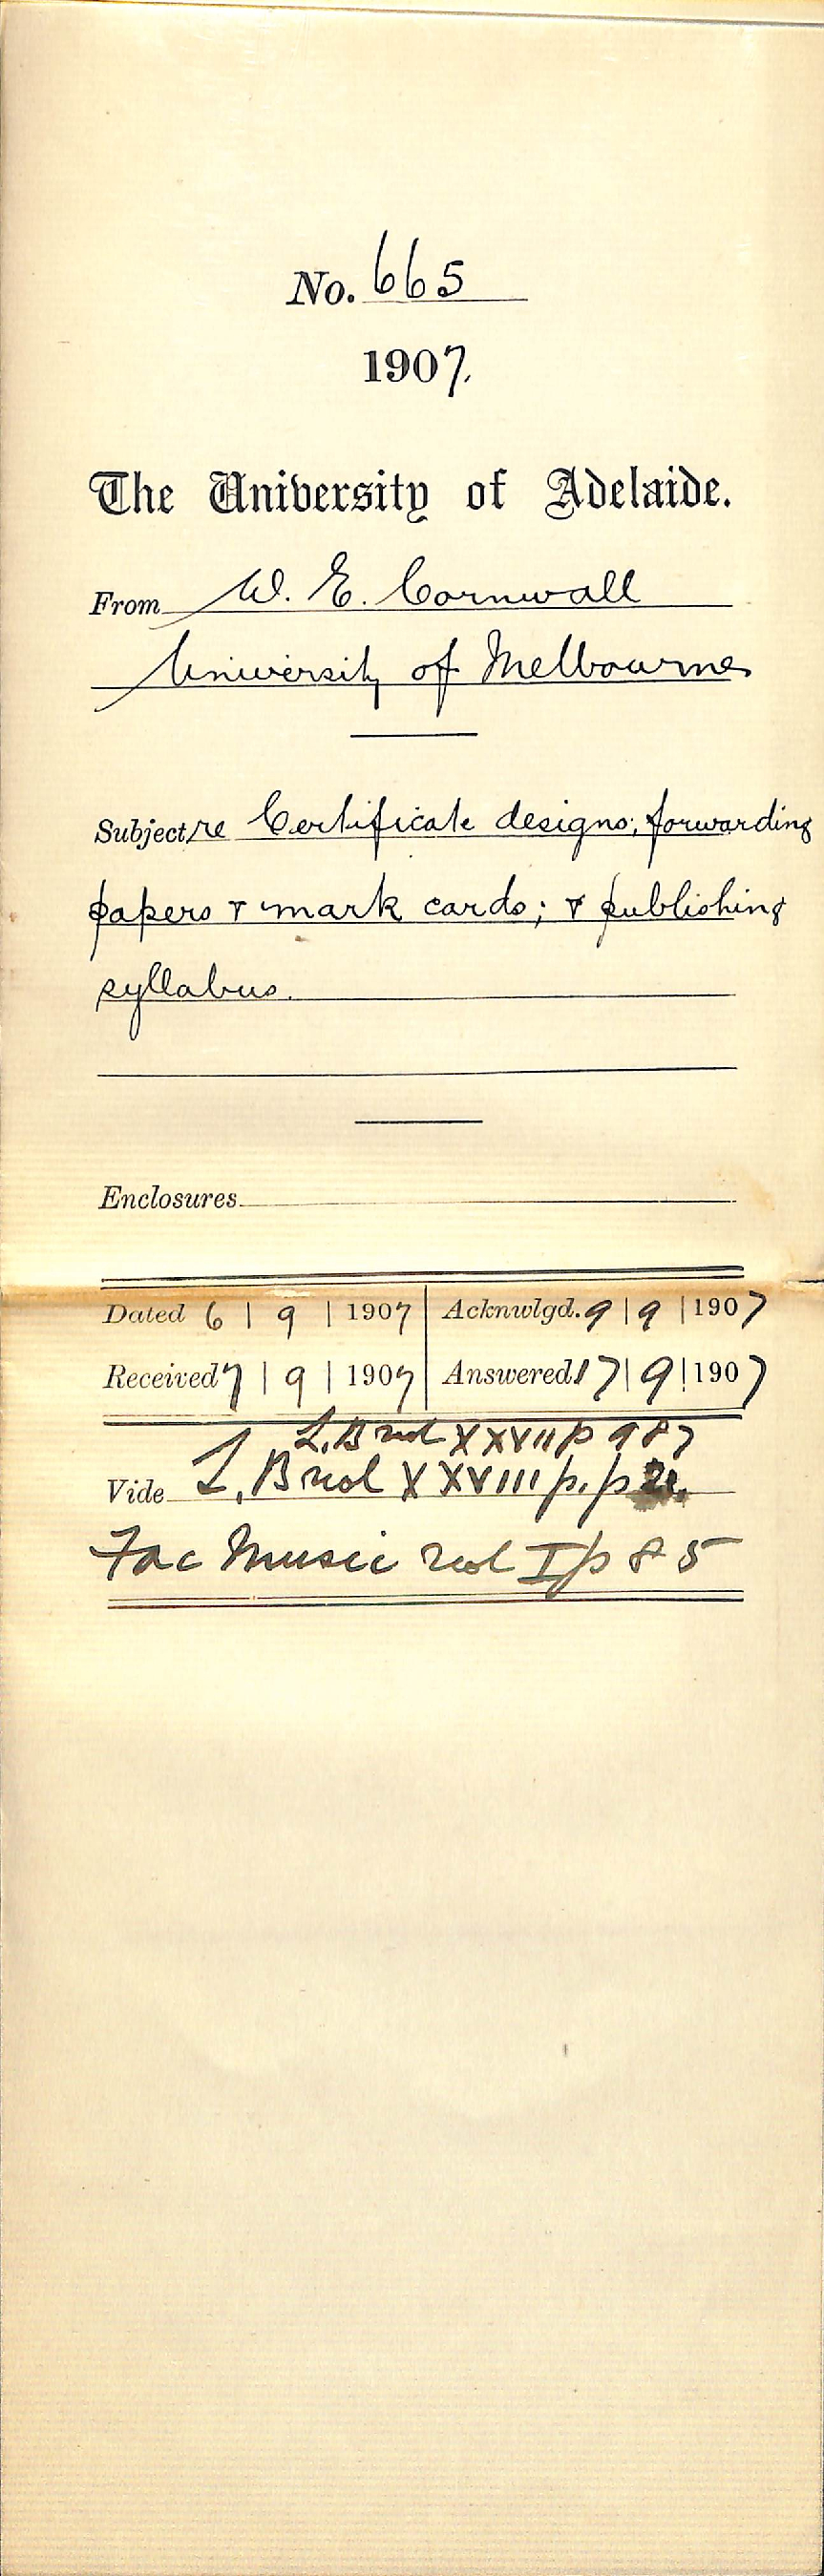 No. 665
1907.
The University of Adelaide.
From W. E. Cornwall
University of Melbourne
Subject re Certificate designs; forwarding
papers & mark cards; & publishing
syllabus.
Enclosures
Dated 6 | 9 | 1907 Acknwlgd. 9 | 9 | 1907
Received 7 | 9 | 1907 Answered 17 | 9 | 1907
L. B vol XXVII p 987
Vide L. B vol XXVIII p. p
Fac Music vol I p 85